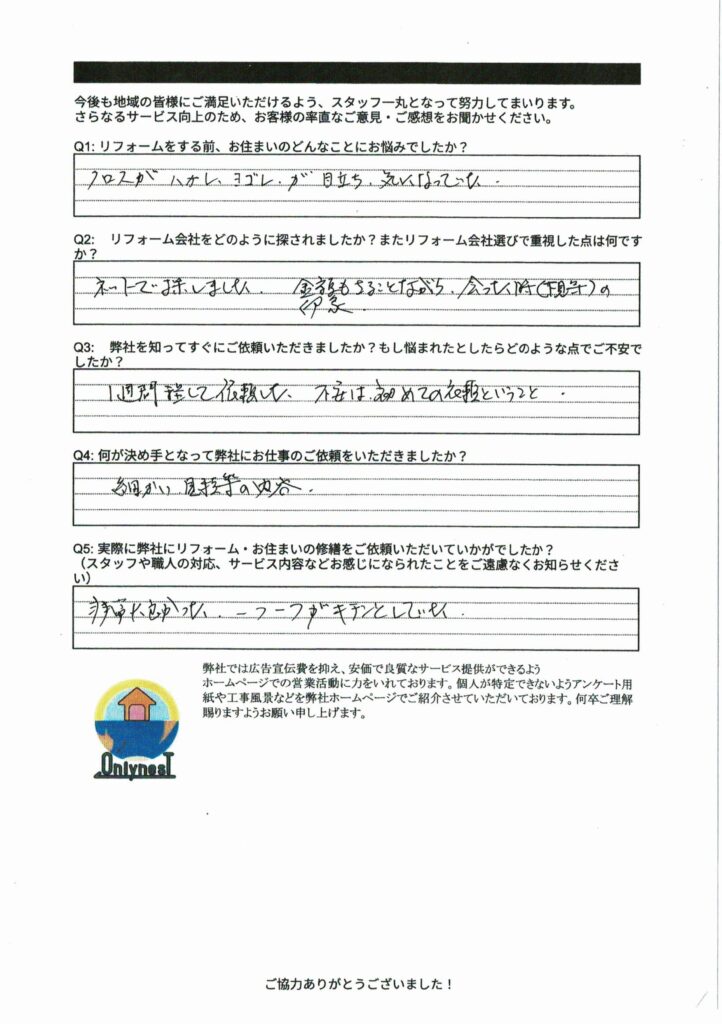 今後も地域の皆様にご満足いただけるよう、スタッフ一丸となって努力してまいります。
さらなるサービス向上のため、お客様の率直なご意見・ご感想をお聞かせください。
Q1: リフォームをする前、お住まいのどんなことにお悩みでしたか？
クロスがハガレ、ヨゴレ、が目立ち、気になっていた.
Q2:　リフォーム会社をどのように探されましたか？またリフォーム会社選びで重視した点は何です
か？
ネットで探しました. 金額もさることながら、会った時(見学)の
印象.
Q3:　弊社を知ってすぐにご依頼いただきましたか？もし悩まれたとしたらどのような点でご不安で
したか？
1週間程して依頼した、不安は、初めての依頼ということ.
Q4: 何が決め手となって弊社にお仕事のご依頼をいただきましたか？
細かい見積等の内容.
Q5: 実際に弊社にリフォーム・お住まいの修繕をご依頼いただいていかがでしたか？
（スタッフや職人の対応、サービス内容などお感じになられたことをご遠慮なくお知らせくださ
い）
非常に良かった. 一つ一つがキチンとしていた.
弊社では広告宣伝費を抑え、安価で良質なサービス提供ができるよう
ホームページでの営業活動に力をいれております。個人が特定できないようアンケート用
紙や工事風景などを弊社ホームページでご紹介させていただいております。何卒ご理解
賜りますようお願い申し上げます。
OnlynesT
ご協力ありがとうございました！